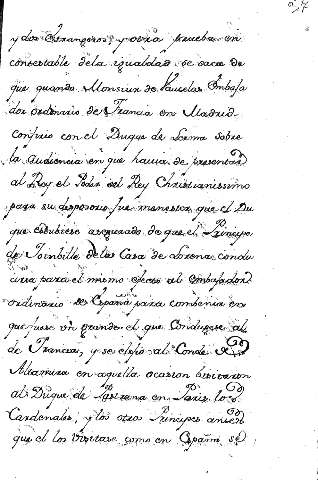 y dos Estrangeros; y otra prueba in
contestable de la igualdad se saca de
que quando Monsiur de Vaucelas Embaja
dor ordinario de Francia en Madrid
confirio con el Duque de Lerma sobre
la Audiencia en que havia de presentar
al Rey el Poder del Rey Christianissimo
para su desposorio fue menester que el Du
que estubiese asegurado de que el Principe
de Joinbille de la Casa de Lorena condu
ciria para el mismo efecto al Embajador
ordinario de España para combenir en
que fuese un grande el que Condugese al
de Francia, y se eligio al Conde de
Altamira en aquella ocasion bisitaron
al Duque de Pastrana en Paris los
Cardenales, y los otros Principes antes
que el los visitase como en España se